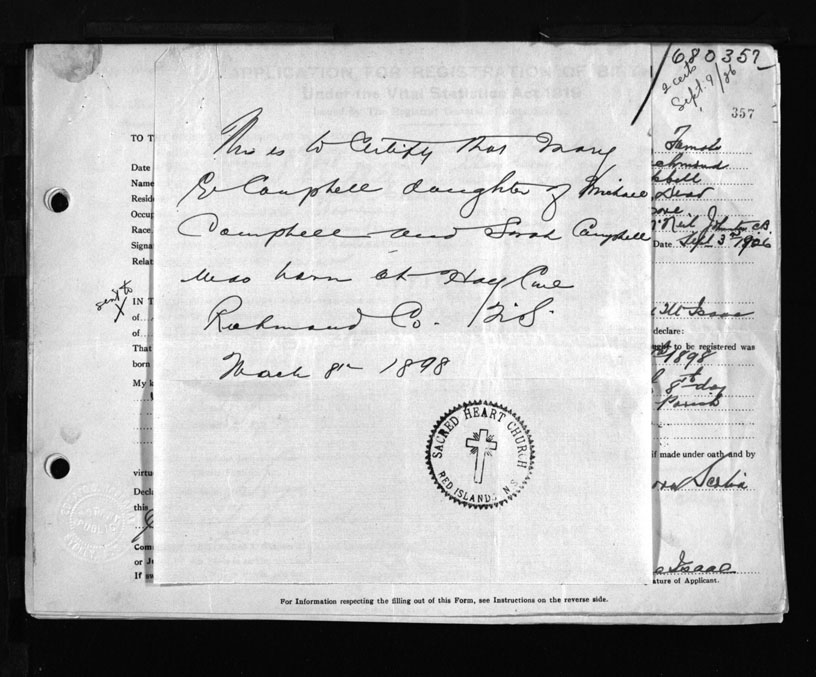 680357
2 certs
Sept. 9/26
357
APPLICATION FOR REGISTRATION OF BIRTH
Under the Vital Statistics Act 1919
This is to Certify that Mary
E. Campbell daughter of Michael
Campbell and Sarah Campbell
was born at Hay Cove
Richmond Co. N.S.
March 8th 1898
SACRED HEART CHURCH
RED ISLANDS N.S.
TO T
Date
Name
Resid
Occup
Race
Signa
Relat
sent to
X
IN T
of
of
That
born
My k
virtu
Decla
this
Com
or Ju
If sw
Female
chmond
pbell
Dead
Neil Johnston C.B.
Date Sept 3rd 1926
Isaac
declare:
ught to be registered was
1898
8th day
Parish
if made under oath and by
ova Scotia
Isaac
ature of Applicant.
For Information respecting the filling out of this Form, see Instructions on the reverse side.